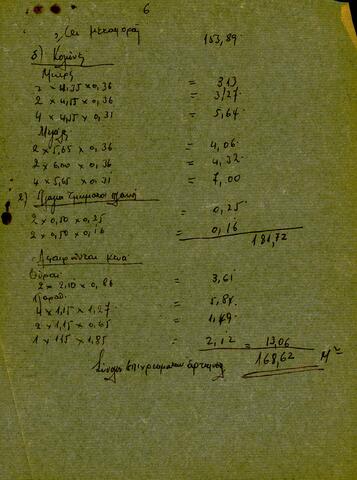 6
Εκ μεταφοράς 153,89
δ) Κολώνες
Μικρές
2 × 4,35 × 0,36 = 3,13
2 × 4,55 × 0,36 = 3,27
4 × 4,55 × 0,31 = 5,64
Μεγάλες
2 × 5,65 × 0,36 = 4,06
2 × 6,00 × 0,36 = 4,32
4 × 5,65 × 0,31 = 7,00
2 × 0,50 × 0,25 = 0,25
2 × 0,50 × 0,16 = 0,16
181,72
Αφαιρούνται κενά
Θύραι
2 × 2,10 × 0,86 = 3,61
Παραθ.
4 × 1,15 × 1,27 = 5,84
2 × 1,15 × 0,65 = 1,49
1 × 1,15 × 1,85 = 2,12 = 13,06
Σύνολον επιχρισμάτων 168,62 Μ²